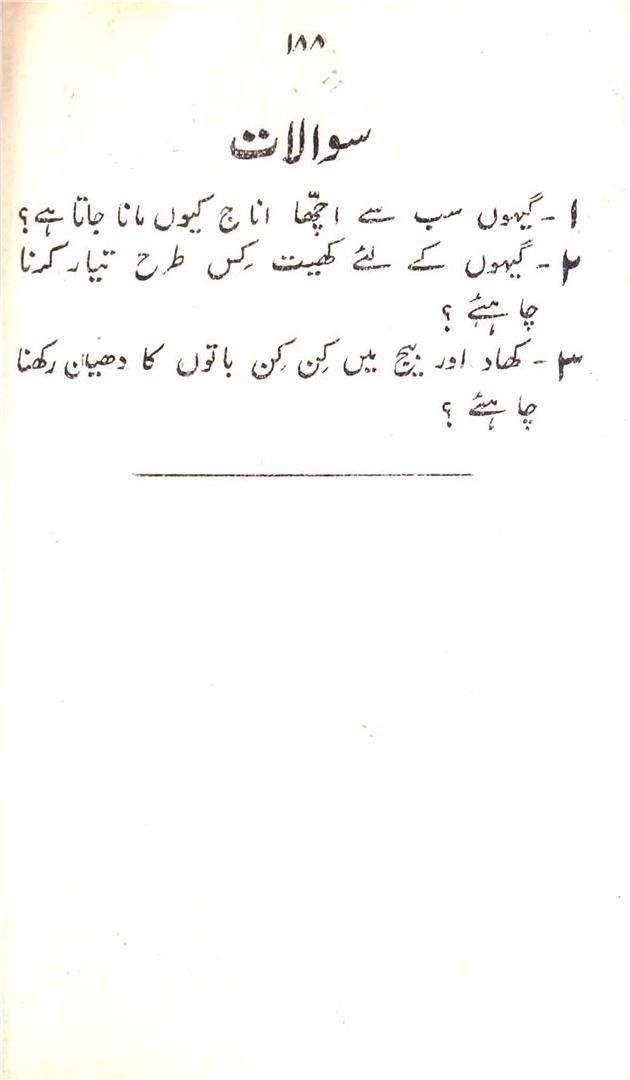 ۱۸۸
سوالات
۱ - گیہوں سب سے اچھّا اناج کیوں مانا جاتا ہے؟
۲ - گیہوں کے لئے کھیت کِس طرح تیار کرنا
چاہئے ؟
۳ - کھاد اور بیج میں کِن کِن باتوں کا دھیان رکھنا
چاہئے ؟